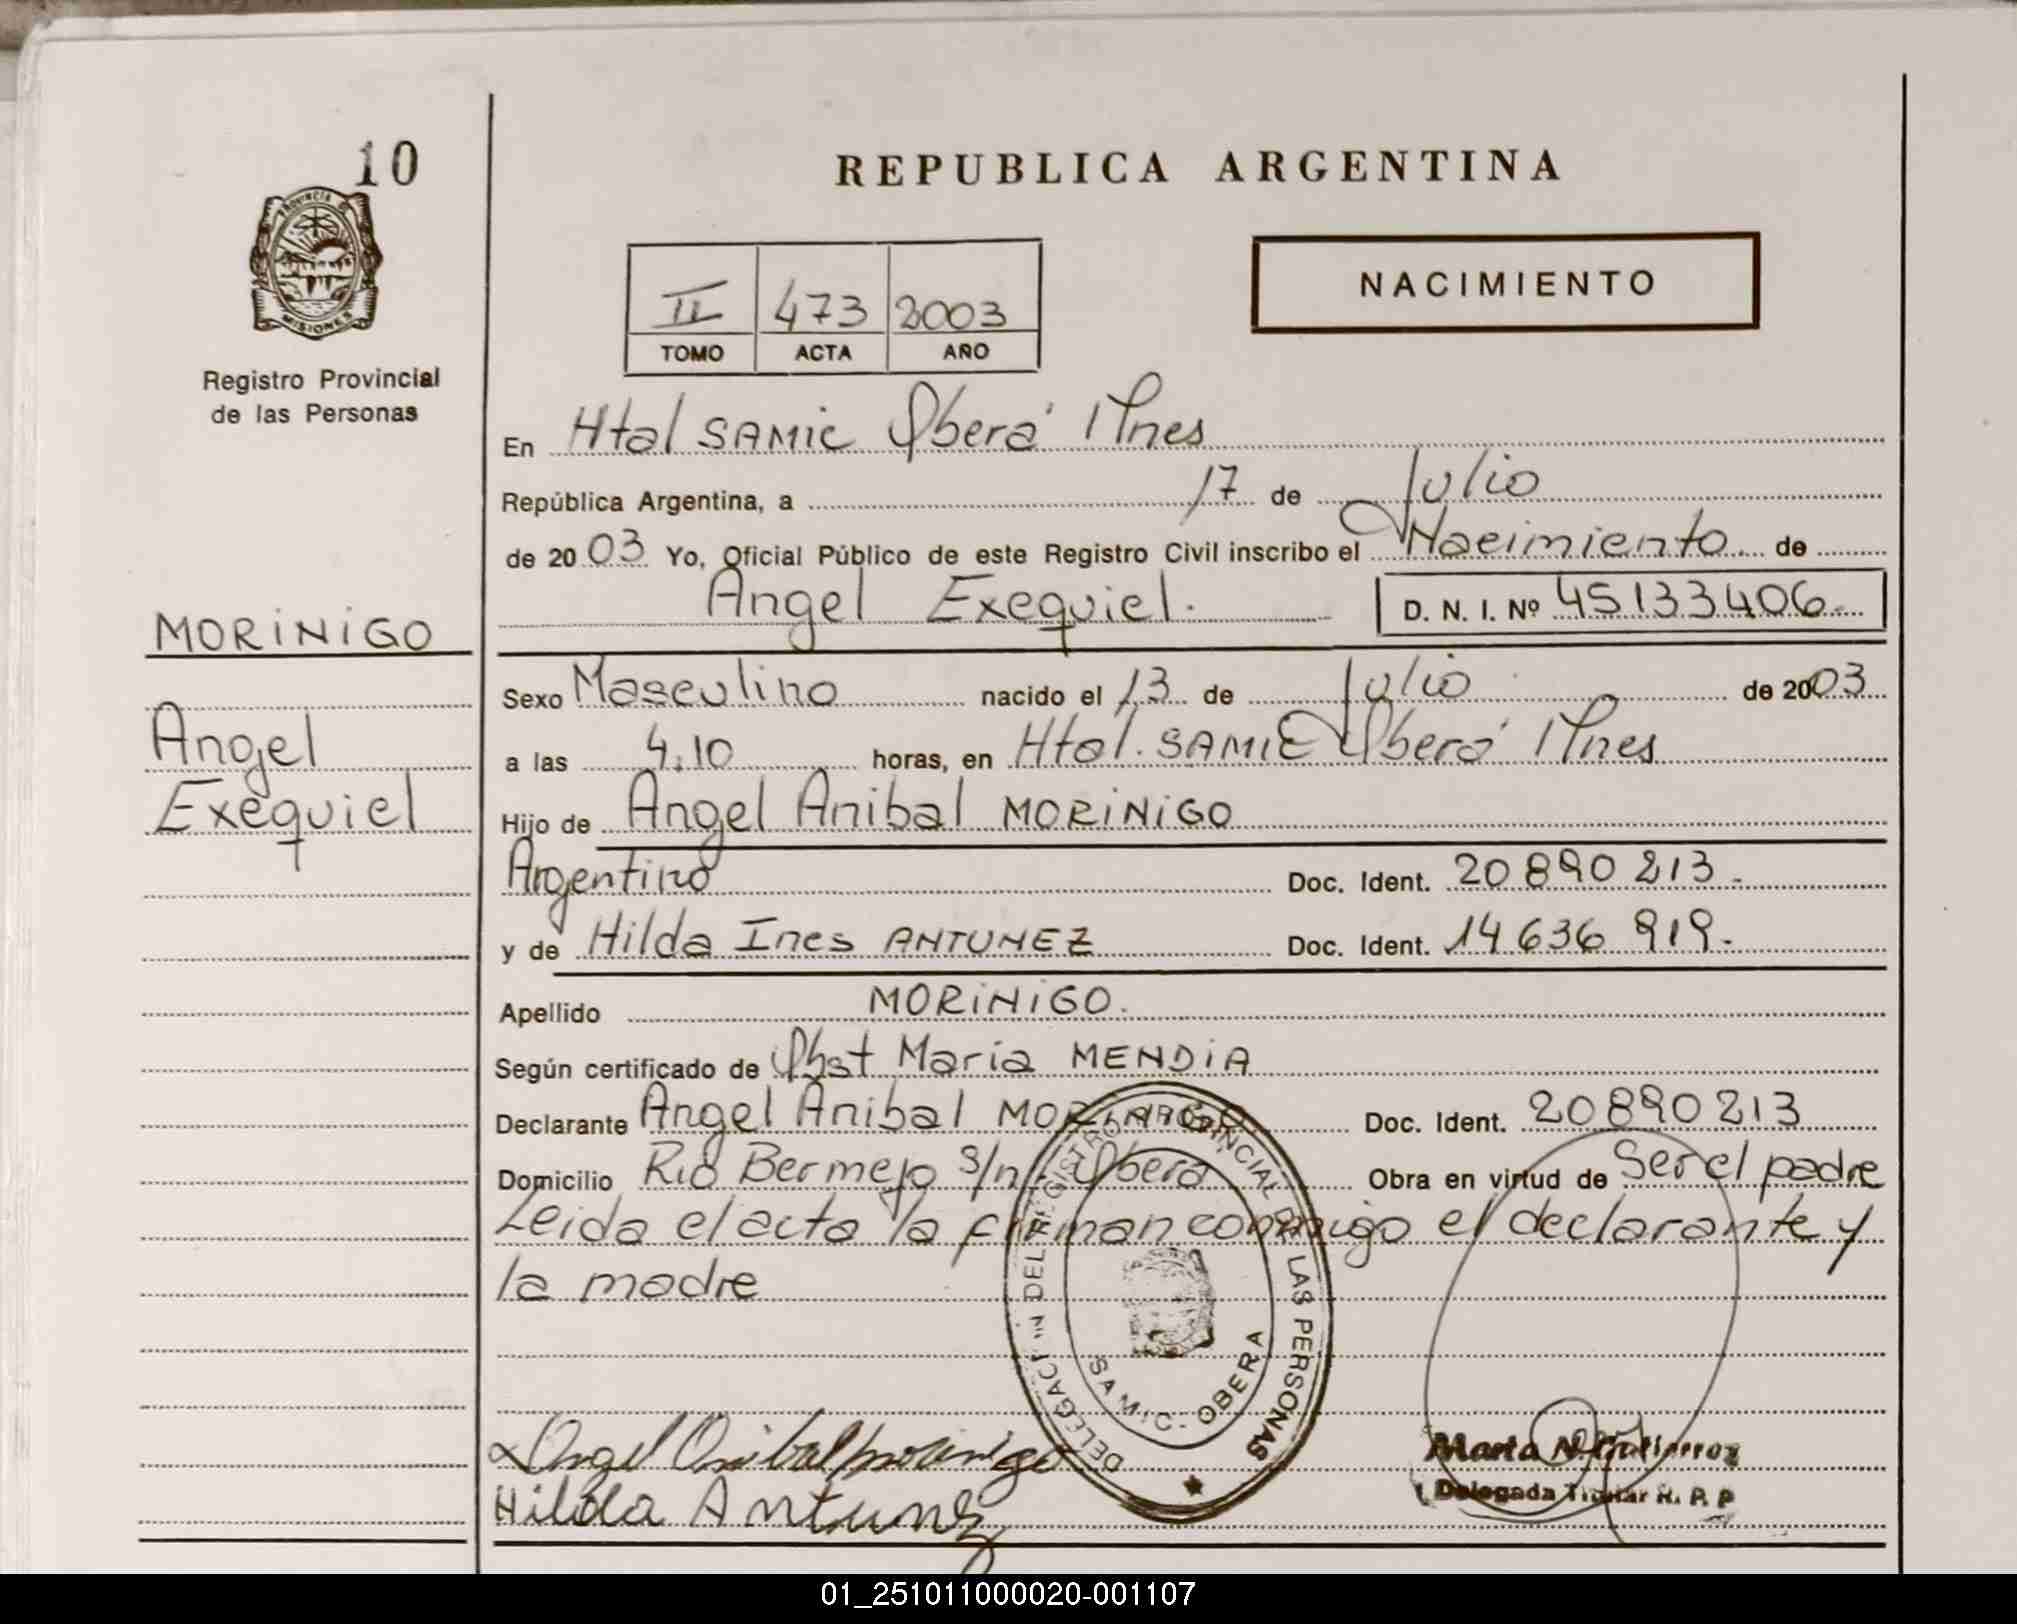 10
PROVINCIA DE
MISIONES
Registro Provincial
de las Personas
MORINIGO
Angel
Exequiel
REPUBLICA ARGENTINA
II 473 2003
TOMO ACTA AÑO
NACIMIENTO
En Htal SAMIC Oberá Mnes
República Argentina, a 17 de Julio
de 2003 Yo, Oficial Público de este Registro Civil inscribo el Nacimiento de
Angel Exequiel. D. N. I. Nº 45133406
Sexo Masculino nacido el 13 de Julio de 2003
a las 4.10 horas, en Htal. SAMIC Oberá Mnes
Hijo de Angel Anibal MORINIGO
Argentino Doc. Ident. 20890213.
y de Hilda Ines ANTUNEZ Doc. Ident. 14636919.
Apellido MORINIGO.
Según certificado de Obst Maria MENDIA
Declarante Angel Anibal MORINIGO Doc. Ident. 20890213
Domicilio Rio Bermejo s/n - Obera Obra en virtud de Ser el padre
Leida el acta la firman conmigo el declarante y
la madre
DELEGACION DEL REGISTRO PROVINCIAL DE LAS PERSONAS
SAMIC - OBERA
Angel Anibal Morinigo
Hilda Antunez
Marta N. Gutierrez
Delegada Titular R. P. P
01_251011000020-001107